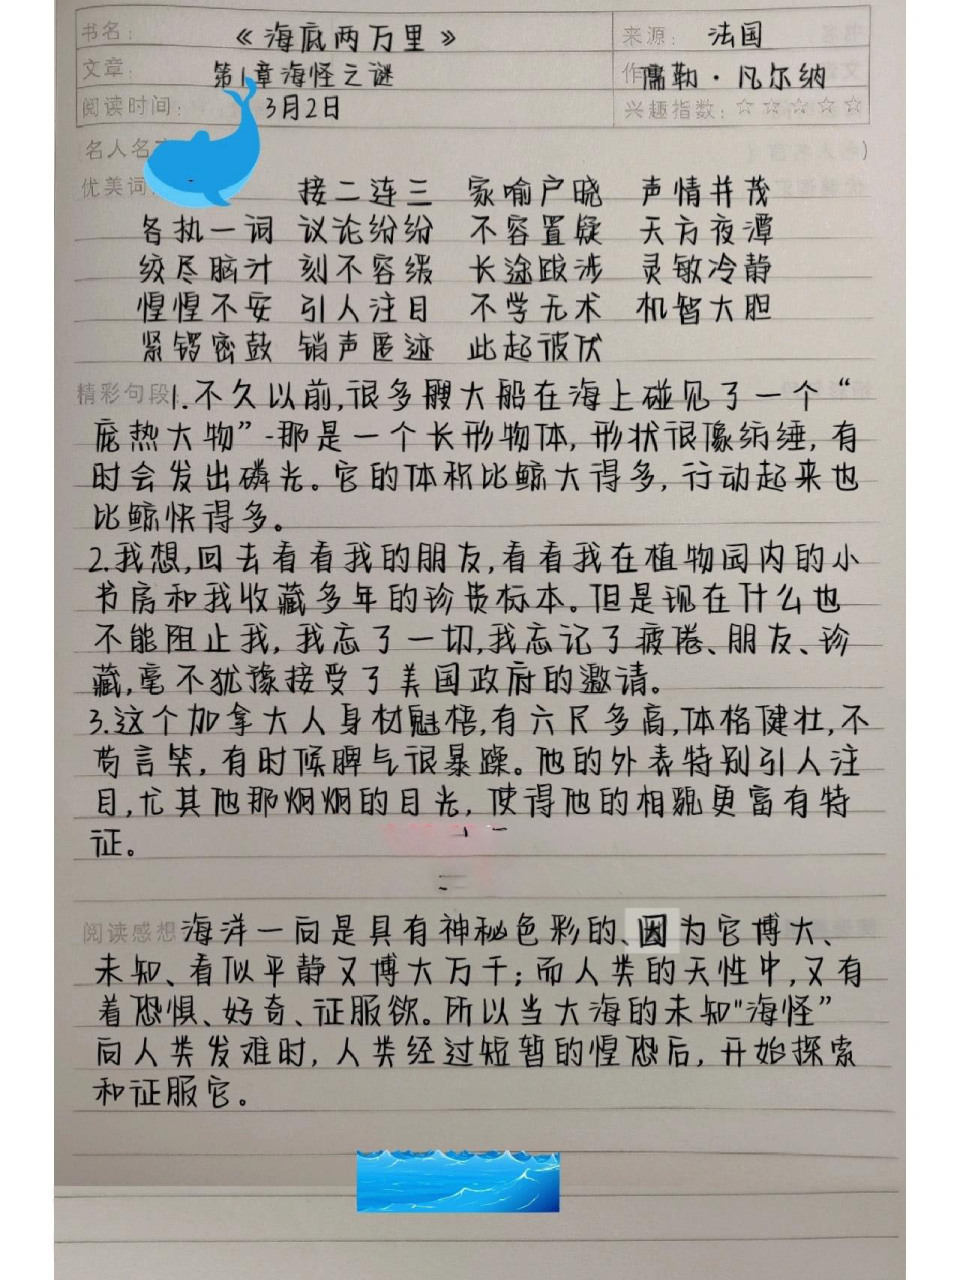 书名： 《海底两万里》 来源： 法国
文章： 第1章海怪之谜 作 儒勒·凡尔纳
阅读时间： 3月2日 兴趣指数：☆☆☆☆☆
名人名 )
优美词 接二连三 家喻户晓 声情并茂
各执一词 议论纷纷 不容置疑 天方夜潭
绞尽脑汁 刻不容缓 长途跋涉 灵敏冷静
惶惶不安 引人注目 不学无术 机智大胆
紧锣密鼓 销声匿迹 此起彼伏
精彩句段： 1.不久以前,很多艘大船在海上碰见了一个“
庞热大物”-那是一个长形物体,形状很像纺缍,有
时会发出磷光。它的体积比鲸大得多,行动起来也
比鲸快得多。
2.我想,回去看看我的朋友,看看我在植物园内的小
书房和我收藏多年的珍贵标本。但是现在什么也
不能阻止我,我忘了一切,我忘记了疲倦、朋友、珍
藏,毫不犹豫接受了美国政府的邀请。
3.这个加拿大人身材魁梧,有六尺多高,体格健壮,不
苟言笑,有时候脾气很暴躁。他的外表特别引人注
目,尤其他那炯炯的目光,使得他的相貌更富有特
征。
阅读感想 海洋一向是具有神秘色彩的、因为它博大、
未知、看似平静又博大万千;而人类的天性中,又有
着恐惧、好奇、征服欲。所以当大海的未知"海怪”
向人类发难时,人类经过短暂的惶恐后,开始探索
和征服它。